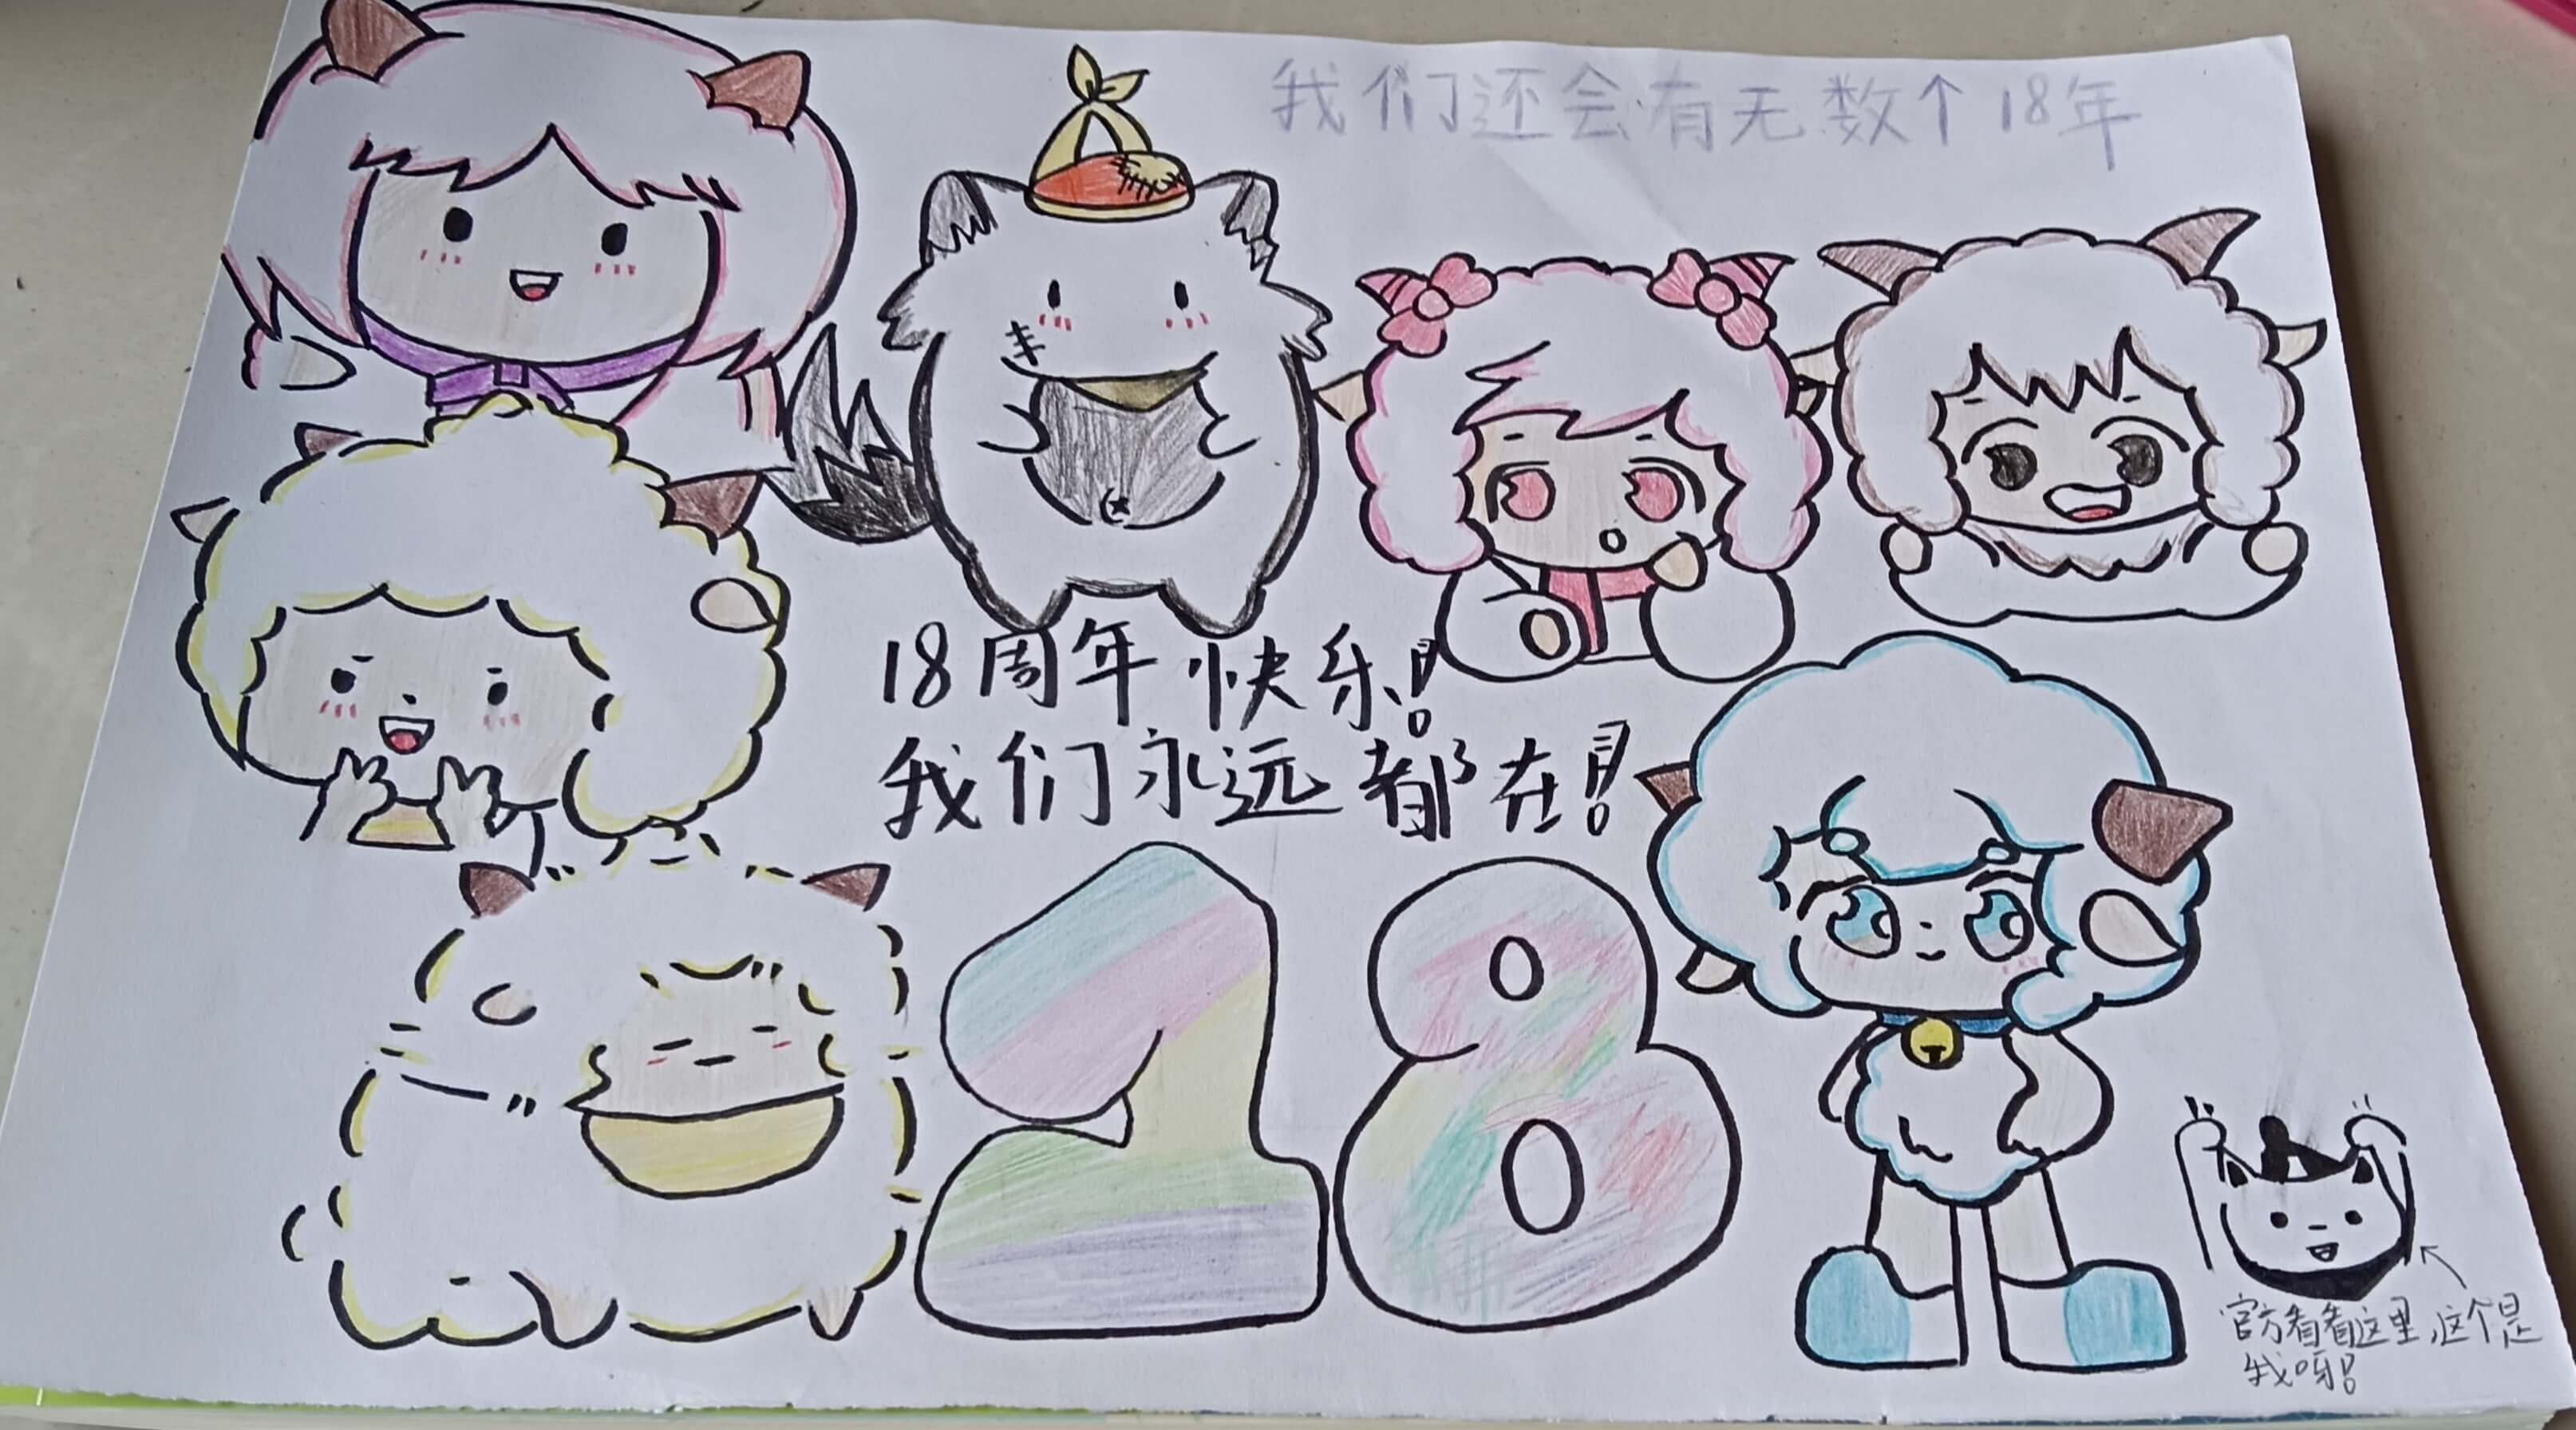 我们还会有无数个18年
18周年快乐!
我们永远都在!
18
官方看看这里,这个是
我呀!